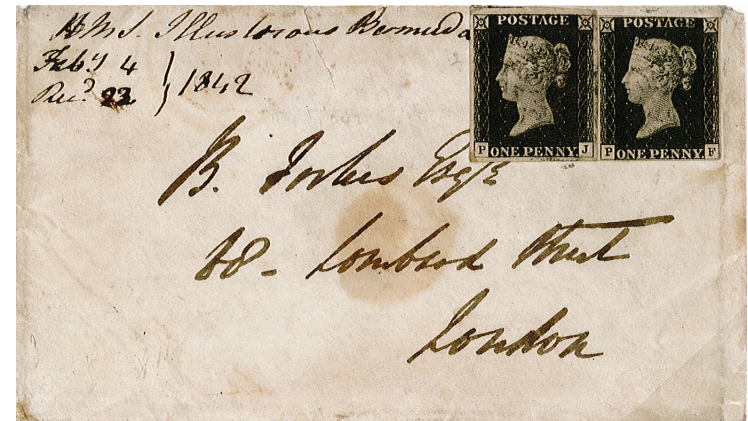 H.M.S. Illustrious Bermuda
Feby 4
Recd 22
1842
POSTAGE
P ONE PENNY. J
POSTAGE
P ONE PENNY. F
B. Forbes Esqre
68 - Lombard Street
London